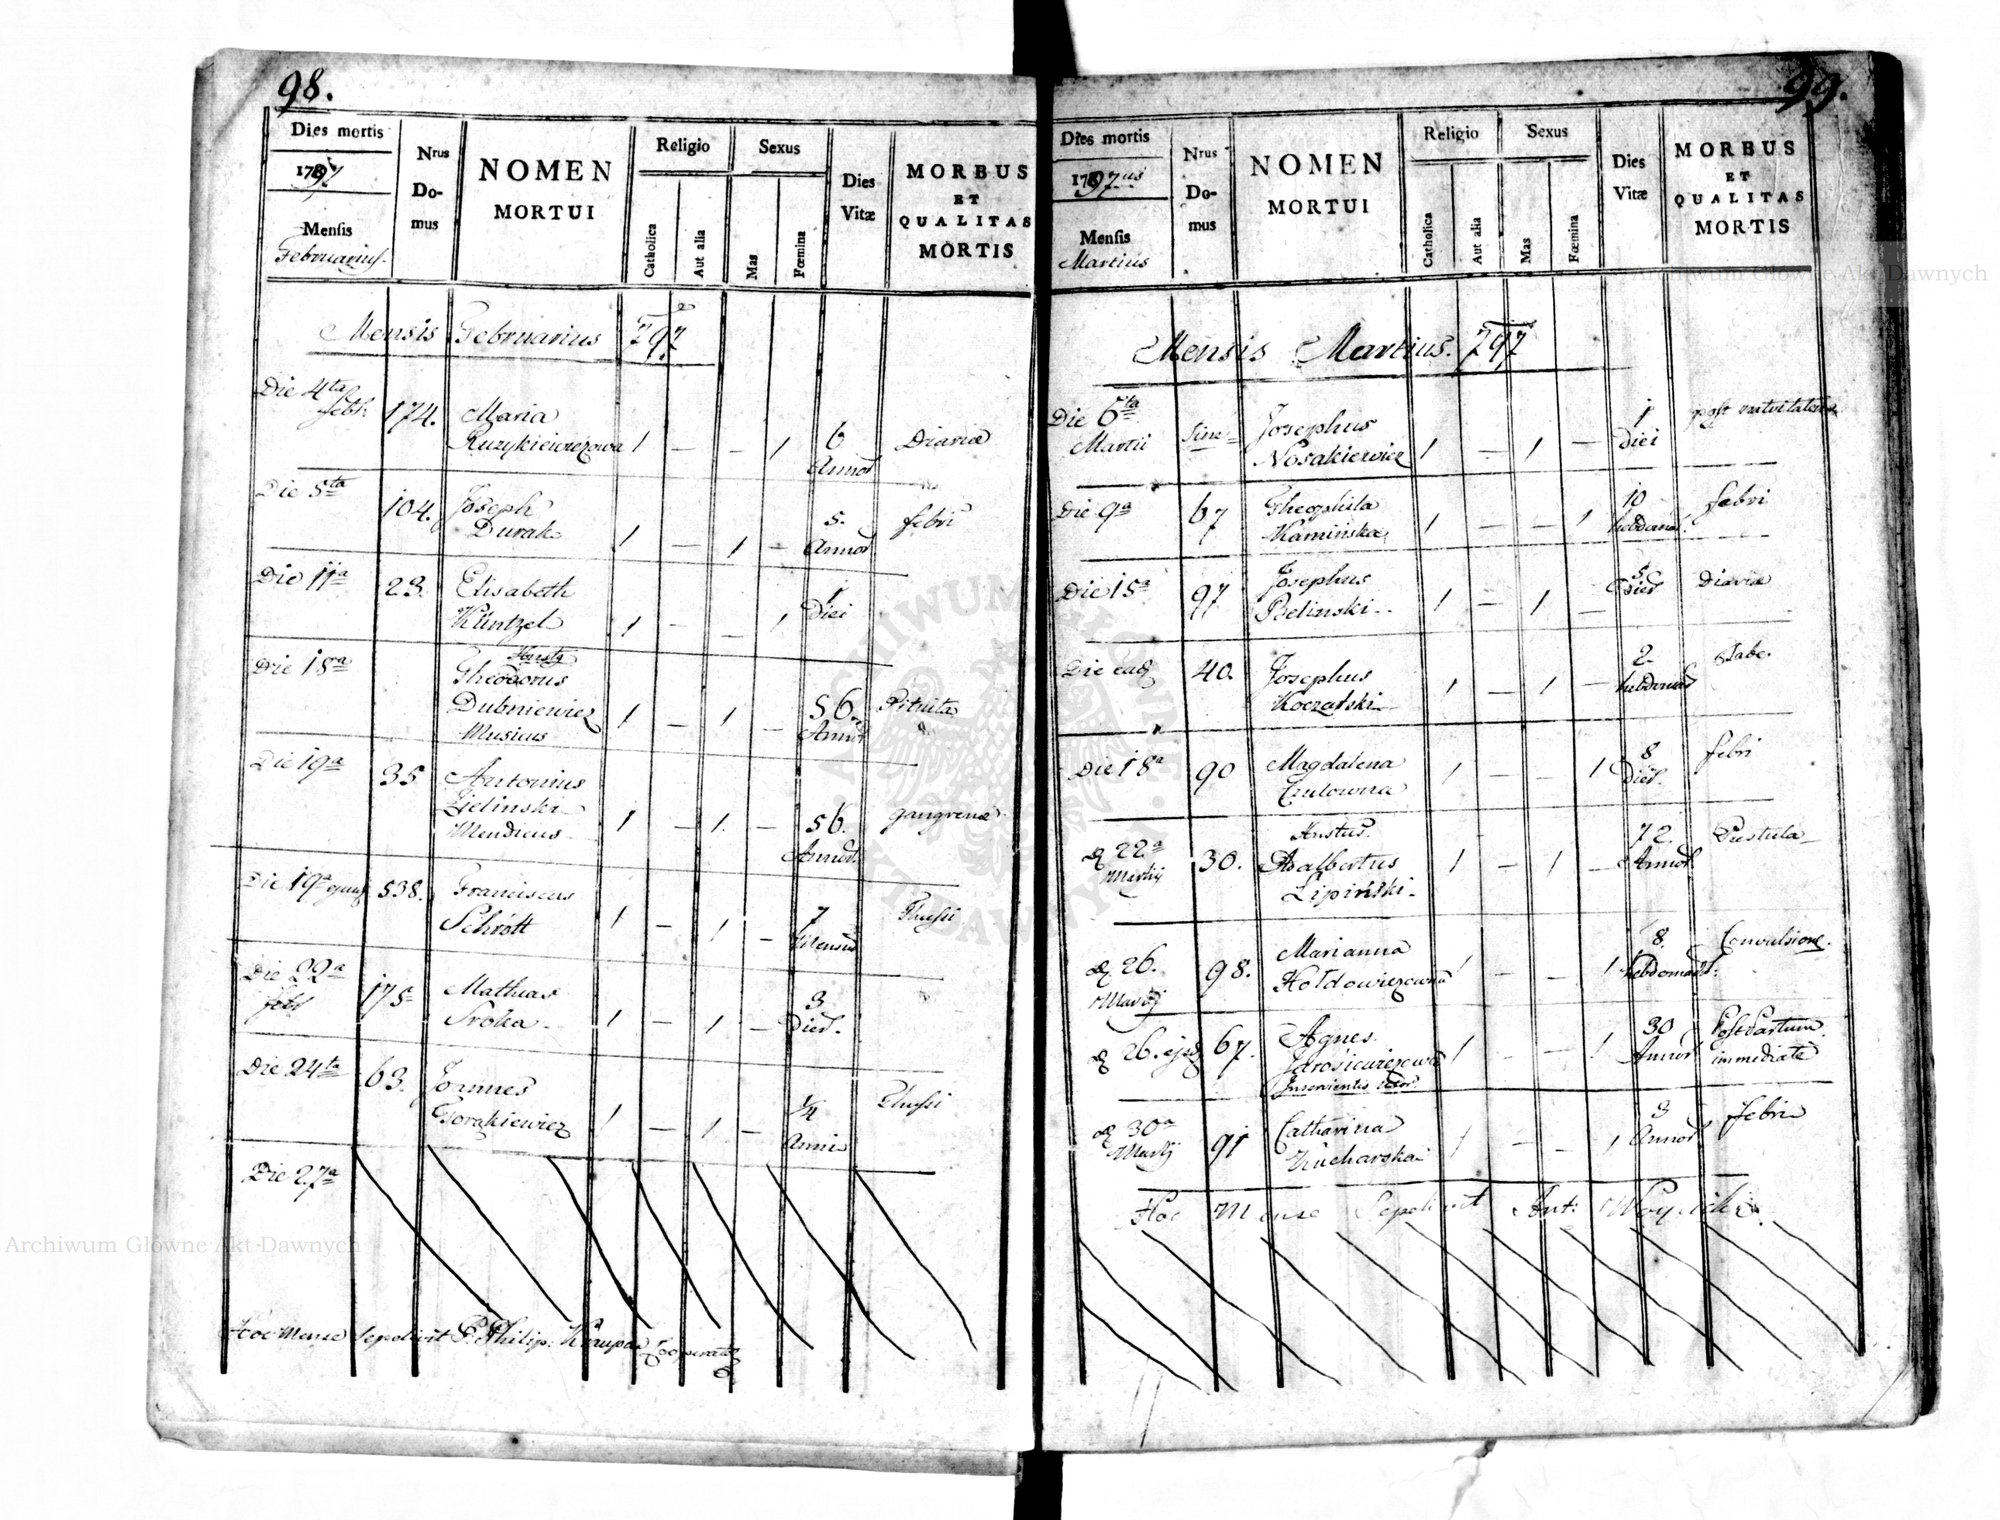 98.
Dies mortis
1797
Mensis
Februarius.
Nrus
Do-
mus
NOMEN
MORTUI
Religio
Catholica
Aut alia
Sexus
Mas
Fœmina
Dies
Vitæ
MORBUS
ET
QUALITAS
MORTIS
Mensis Februarius 797
Die 4ta
febr 174. Maria
Ruzykiewiczowa 1 — — 1 6 Annor Diariæ
Die 5ta
104. Joseph
Durak 1 — 1 — 5. Annor febri
Die 11a 23. Elisabeth
Küntzel 1 — — 1 1 Diei
Die 18a
Theodorus
Dubniewicz 1 — 1 — 56. Annor Pituita
Musicus
Die 19a 35 Antonius
Zielinski
Mendicus 1 — 1. — 56. Annor. gangrenæ
Die 19a 538. Franciscus
Schrött 1 — 1 — 7 Mensiu Thussi
Die 22a
febr 175 Mathias
Sroka 1 — 1 — 3 Dier.
Die 24ta 63. Joannes
Gorzkiewicz 1 — 1 — 1/4 Anni Thussi
Die 27a
Hoc mense sepelivit P. Philip: Krupa Cooperator
99.
Dies mortis
1797us
Mensis
Martius
Nrus
Do-
mus
NOMEN
MORTUI
Religio
Catholica
Aut alia
Sexus
Mas
Fœmina
Dies
Vitæ
MORBUS
ET
QUALITAS
MORTIS
Mensis Martius. 797
Die 6ta
Martii Sine Josephus
Nosakiewicz 1 — 1 — 1 Diei post nativitatem
Die 9a 67 Theophila
Kamińska 1 — — 1 10 hebdomad. febri
Die 15a 97 Josephus
Belinski 1 — 1 — 5. Dier Diariæ
Die ead 40. Josephus
Koczalski 1 — 1 — 2 hebdomad Tabe.
Die 18a 90 Magdalena
Czulowna 1 — — 1 8 Dier. febri
22a
Martij 30. Adalbertus
Lipiński 1 — 1 — 72. Annor Pustula
26.
Martij 98. Marianna
Hołdowiczowna 1 — — 1 8 hebdomad: Convulsione.
26. 67. Agnes
Jarosiewiczowa 1 — — 1 30 Annor Post Partum
immediate
30a
Martij 91 Catharina
Kucharska 1 — — 1 3 Annor febri
Hoc Mense Sepelivit Ant:
Archiwum Główne Akt Dawnych
Archiwum Główne Akt Dawnych
ARCHIWUM GŁÓWNE AKT DAWNYCH